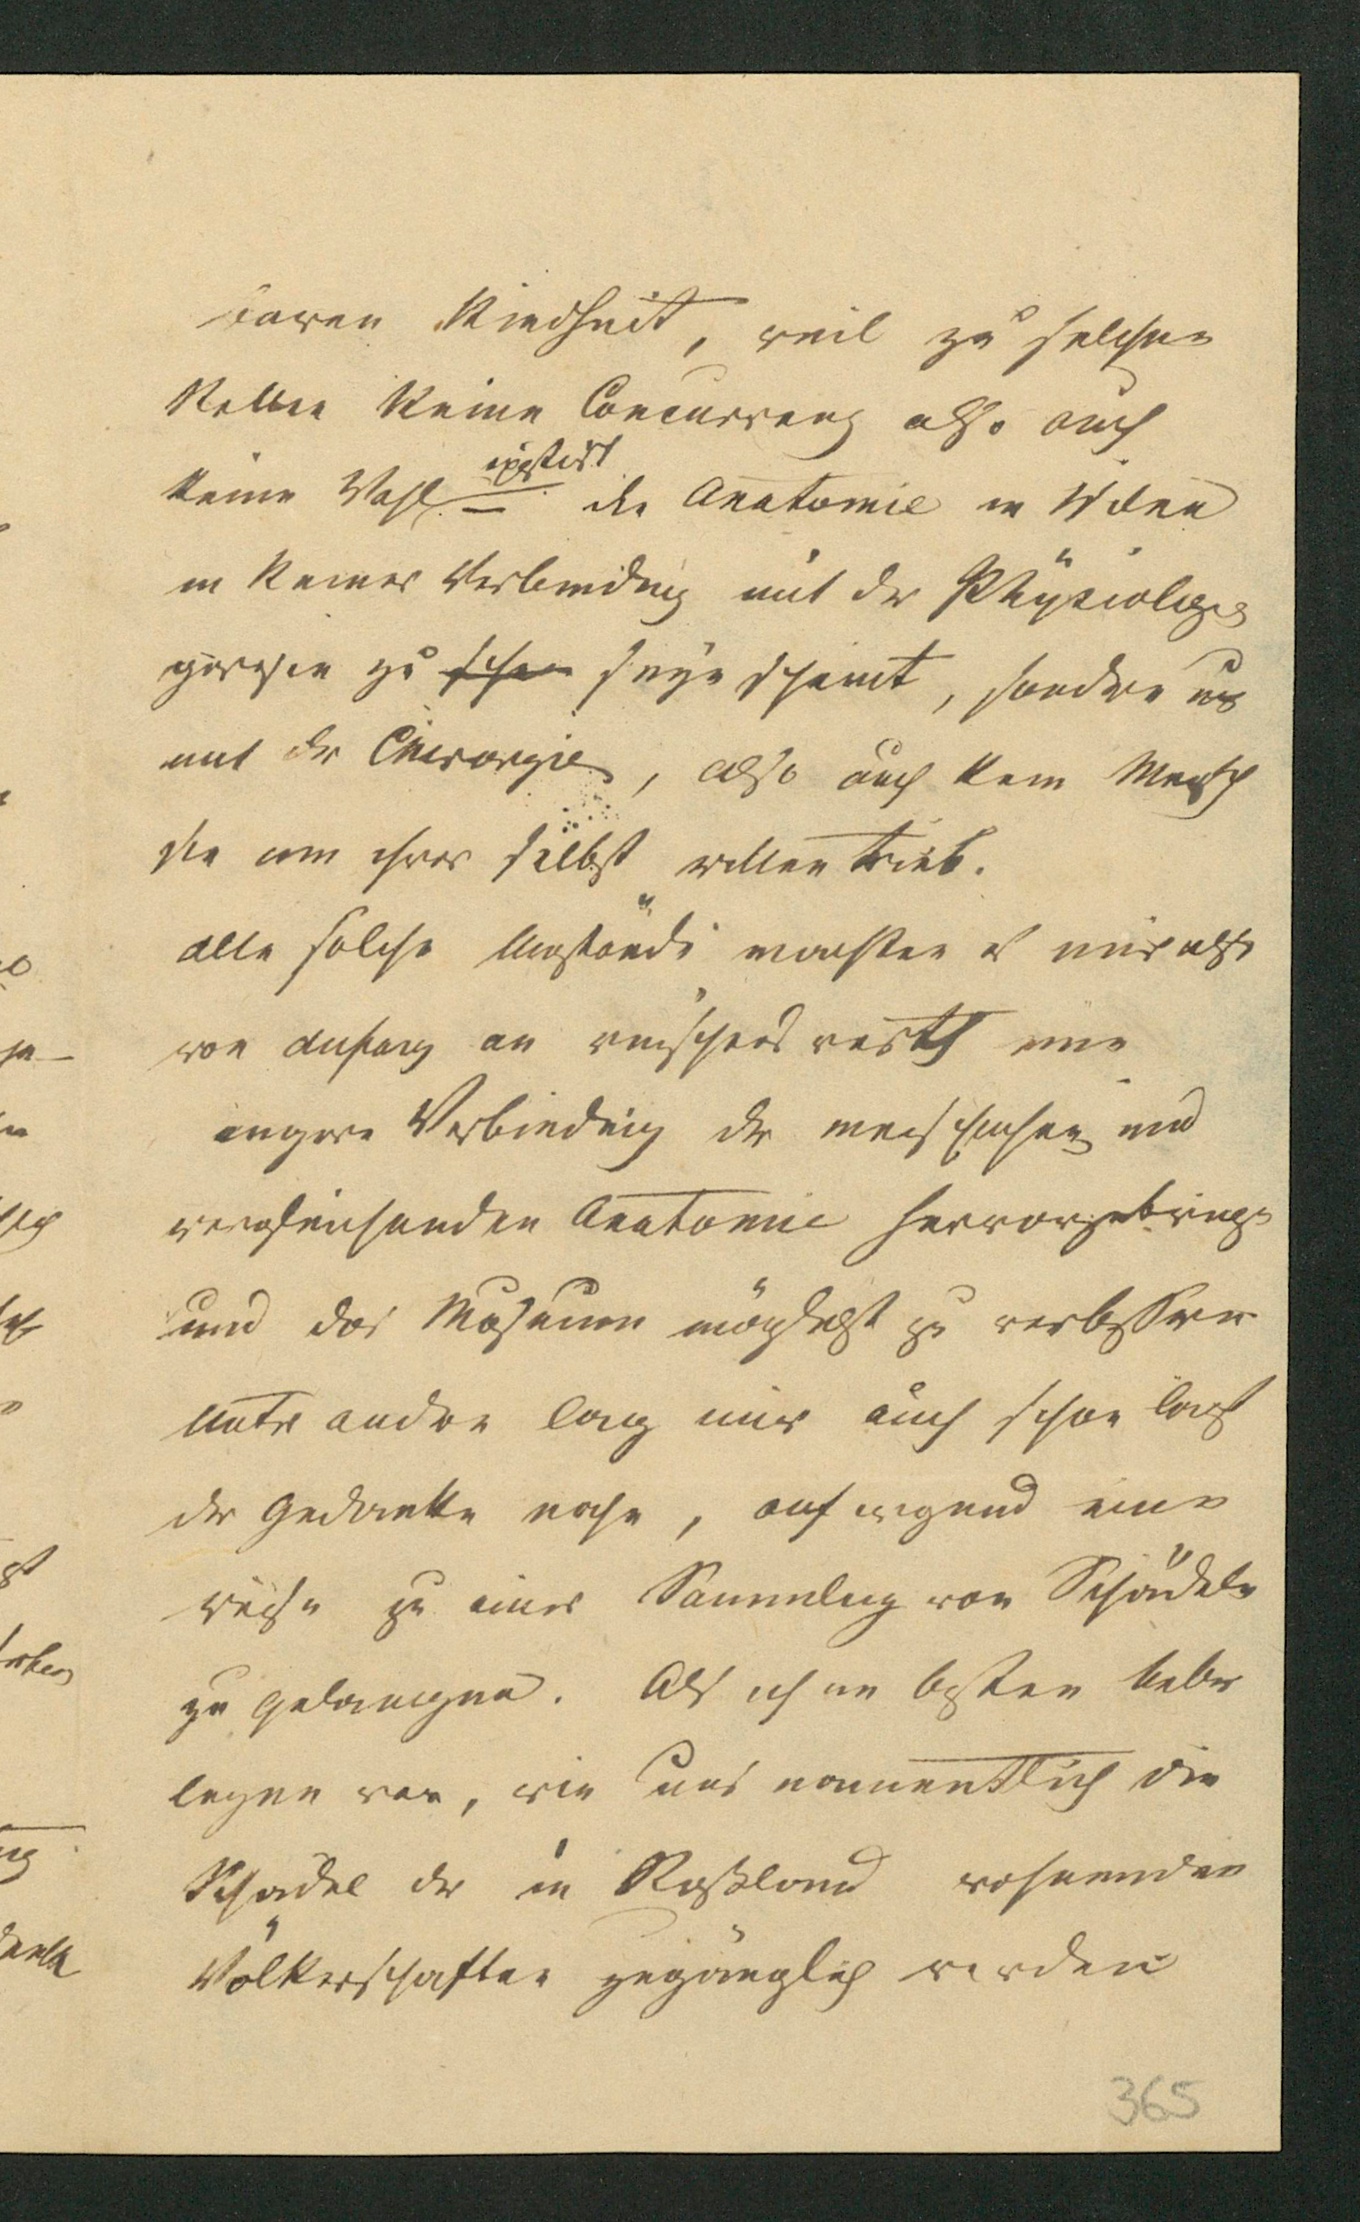 baren Kindheit, weil zu solchen
Stellen keine Concurrenz also auch
keine Wahl existirt die Anatomie in
in keiner Verbindung mit der Physiologie
gewesen zu seyn scheint, sondern nur
mit der Chirurgie, also auch kein Mensch
sie um ihrer selbst willen trieb.
Alle solche Umstände machten es mir also
von Anfang an wünschenswerth eine
engere Verbindung der menschlichen und
vergleichenden Anatomie hervorzubringen
und das Museum möglichst zu verbessern
Unter andern lag mir auch schon längst
der Gedanke nahe, auf irgend eine
Weise zu einer Sammlung von Schädeln
zu gelangen. Als ich am besten Ueber
legen war, wie uns namentlich die
Schädel der in Rußland wohnenden
Völkerschaften zugänglich werden
365